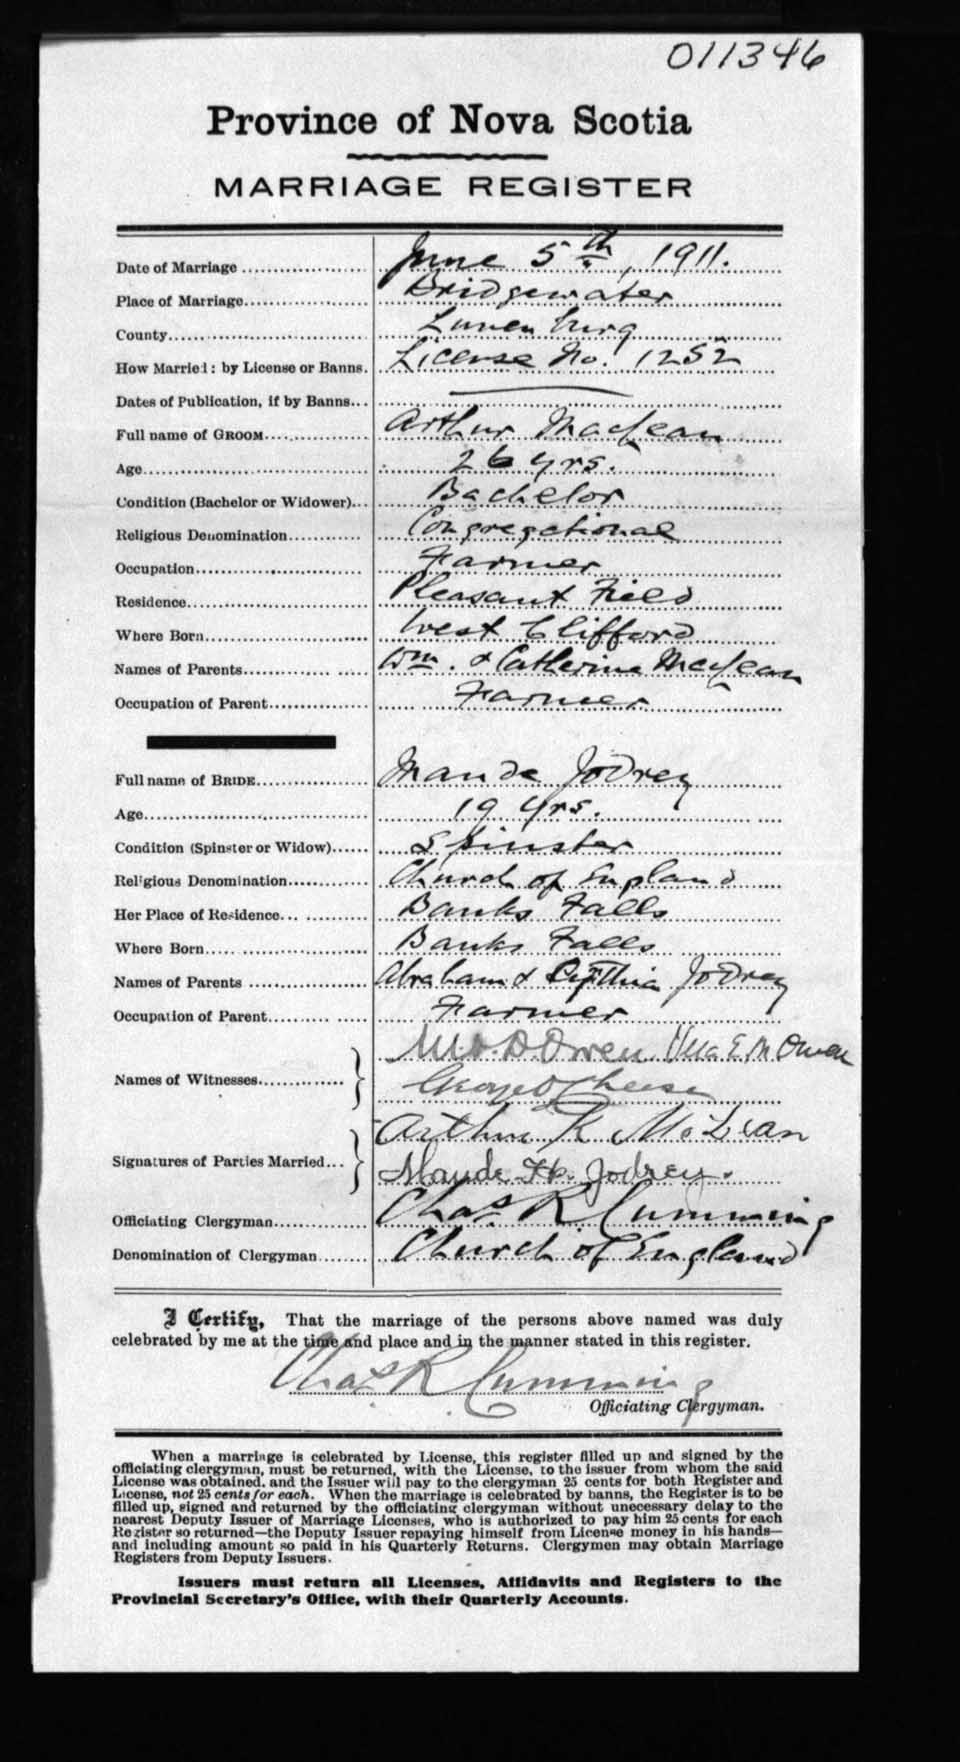 011346
Province of Nova Scotia
MARRIAGE REGISTER
Date of Marriage June 5th, 1911.
Place of Marriage Bridgewater
County Lunenburg
How Married: by License or Banns. License No. 1252
Dates of Publication, if by Banns
Full name of GROOM Arthur MacLean
Age 26 yrs.
Condition (Bachelor or Widower) Bachelor
Religious Denomination Congregational
Occupation Farmer
Residence Pleasant Field
Where Born West Clifford
Names of Parents Wm. & Catherine MacLean
Occupation of Parent Farmer
Full name of BRIDE Maude Jodrey
Age 19 yrs.
Condition (Spinster or Widow) Spinster
Religious Denomination Church of England
Her Place of Residence Banks Falls
Where Born Banks Falls
Names of Parents Abraham & Cynthia Jodrey
Occupation of Parent Farmer
Names of Witnesses D. Owen E. M Owen
George
Arthur R McLean
Signatures of Parties Married Maude Jodrey.
Officiating Clergyman Chas. R. Cumming
Denomination of Clergyman Church of England
I Certify, That the marriage of the persons above named was duly
celebrated by me at the time and place and in the manner stated in this register.
Chas. R. Cumming
Officiating Clergyman.
When a marriage is celebrated by License, this register filled up and signed by the
officiating clergyman, must be returned, with the License, to the issuer from whom the said
License was obtained, and the Issuer will pay to the clergyman 25 cents for both Register and
License, not 25 cents for each. When the marriage is celebrated by banns, the Register is to be
filled up, signed and returned by the officiating clergyman without unnecessary delay to the
nearest Deputy Issuer of Marriage Licenses, who is authorized to pay him 25 cents for each
Register so returned—the Deputy Issuer repaying himself from License money in his hands—
and including amount so paid in his Quarterly Returns. Clergymen may obtain Marriage
Registers from Deputy Issuers.
Issuers must return all Licenses, Affidavits and Registers to the
Provincial Secretary's Office, with their Quarterly Accounts.